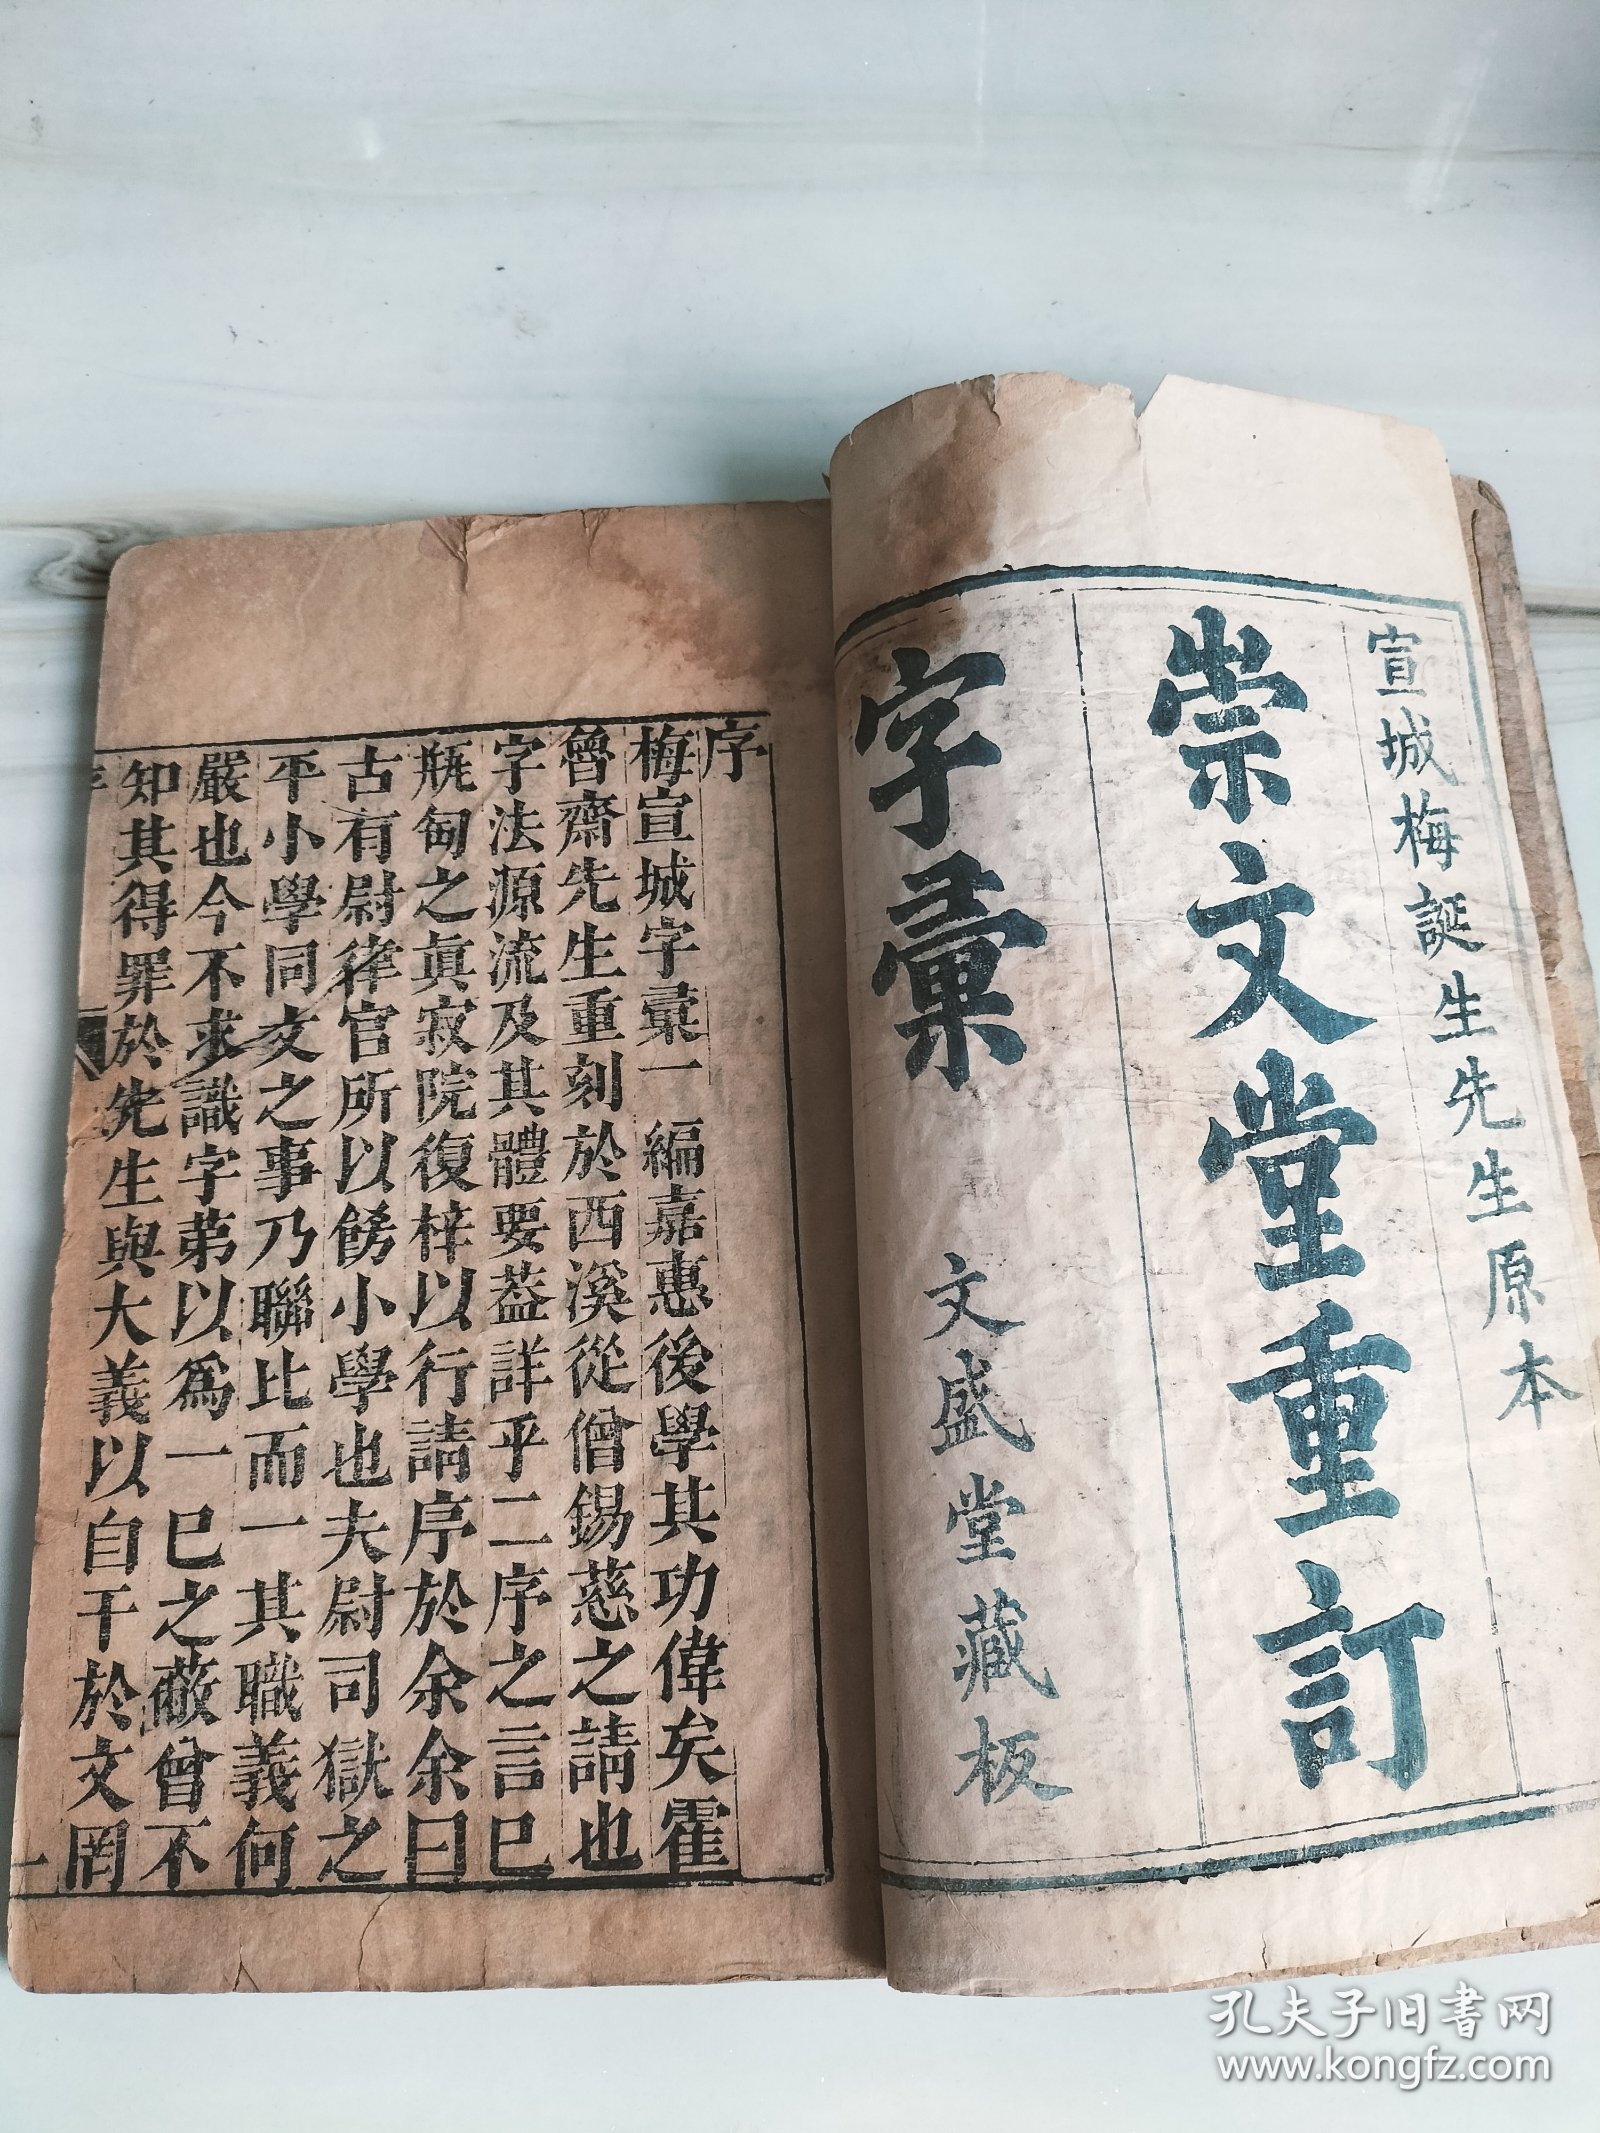 宣城梅誕生先生原本
崇文堂重訂
字彙
文盛堂藏板
序
梅宣城字彙一編嘉惠後學其功偉矣霍
魯齋先生重刻於西溪從僧錫慈之請也
字法源流及其體要葢詳乎二序之言已
瓶匋之眞寂院復梓以行請序於余余曰
古有尉律官所以餝小學也夫尉司獄之
平小學同文之事乃聯比而一其職義何
嚴也今不求識字苐以爲一已之蔽曾不
知其得罪於先生與大義以自干於文罔
序
一
孔夫子旧书网
www.kongfz.com